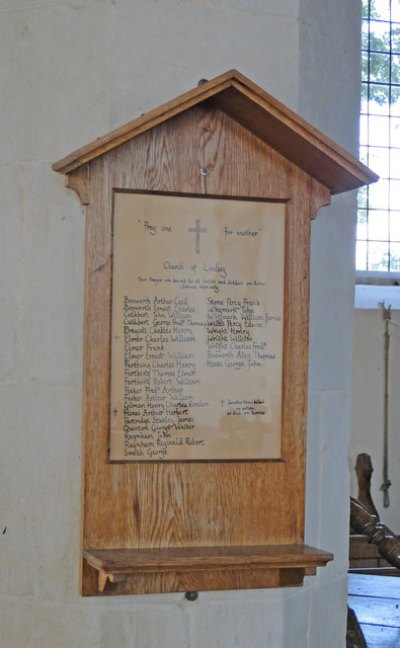 "Pray one for another"
Church of Lindsey
Your Prayers are desired for all Sailors and Soldiers on Active
Service especially
Bosworth Arthur Cecil
Bosworth Ernest Charles
Cuthbert John William
Cuthbert George Fredk Thomas
Charles Henry
Elmer Charles William
Elmer Frank
Elmer Ernest William
Farthing Charles Henry
Farthing Thomas Elmer
Farthing Robert William
Foker Fredk Arthur
Foker Arthur William
Gilman Henry Charles
Hanes Arthur Herbert
Partridge Stanley James
George Walter
Raynham John
Raynham Reginald Robert
Smith George
Stone Percy Frank
Whymark John
Whymark William James
Willis Percy Edwin
Wright Henry
Wright William
Wright Charles Fredk
Bosworth Alan Thomas
Hanes George John
† denotes those killed
in action
or died on Service